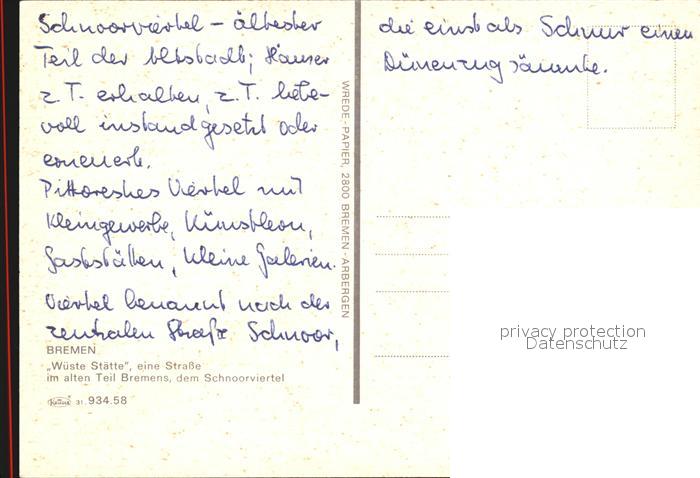 Schnoorviertel – ältester
Teil der Altstadt; Häuser
z.T. erhalten, z.T. liebe-
voll instandgesetzt oder
erneuert.
Pittoreskes Viertel mit
Kleingewerbe, Künstlern,
Gaststätten, kleine Galerien.
Viertel benannt nach der
zentralen Straße Schnoor,
BREMEN
„Wüste Stätte", eine Straße
im alten Teil Bremens, dem Schnoorviertel
Krüger 31.934.58
WREDE-PAPIER, 2800 BREMEN-ARBERGEN
die einst als Schnur einen
Dünenzug säumte.
privacy protection
Datenschutz